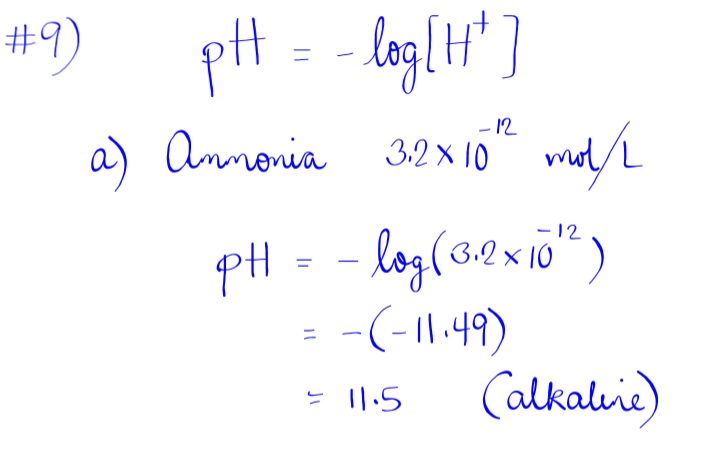 #9) pH = -log[H⁺]
a) Ammonia 3.2 × 10⁻¹² mol/L
pH = -log(3.2 × 10⁻¹²)
= -(-11.49)
= 11.5 (alkaline)